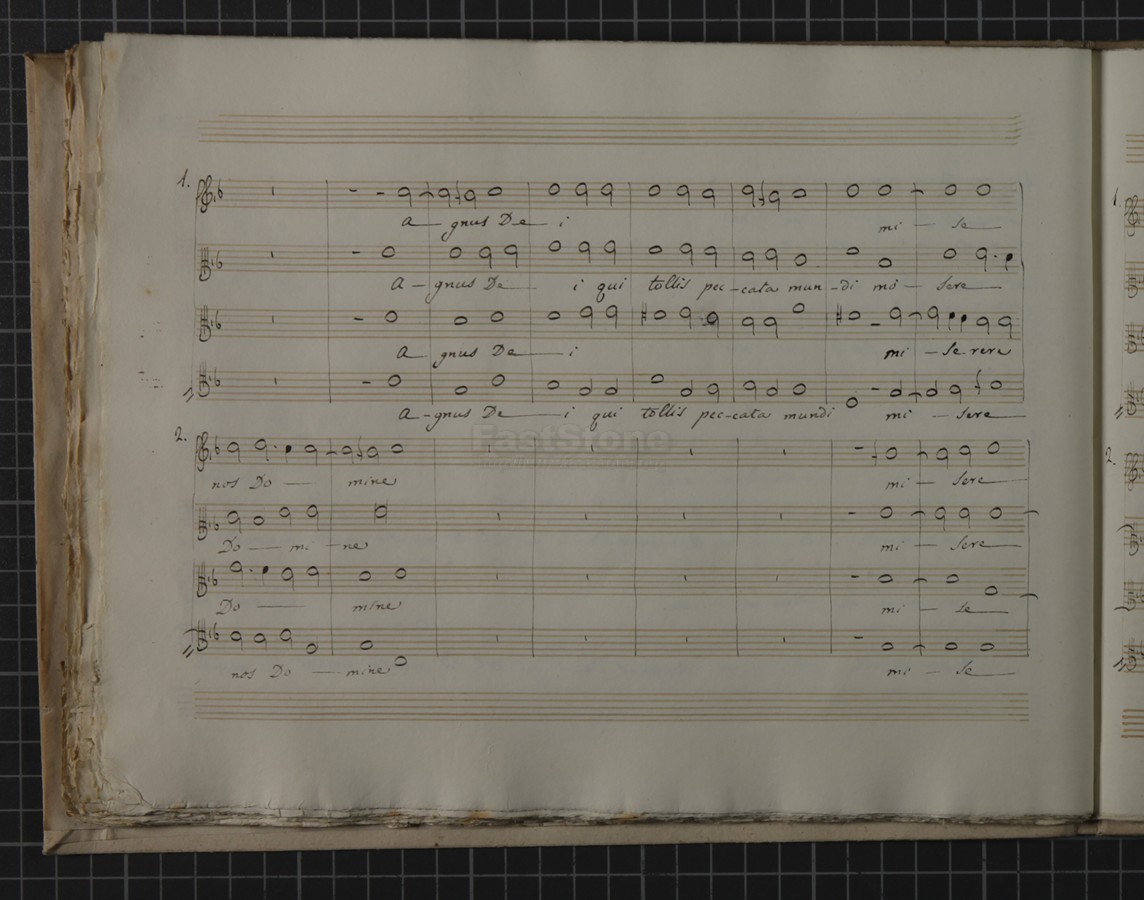 1.
A - gnus De - i mi - se
A - gnus De - i qui tollis pec-cata mun-di mi - sere
A - gnus De - i mi - serere
A - gnus De - i qui tollis pec-cata mundi mi - sere
2.
nos Do - mine mi - sere
Do - mi - ne mi - sere
Do - mine mi - se
nos Do - mine mi - se
FastStone
1.
2.